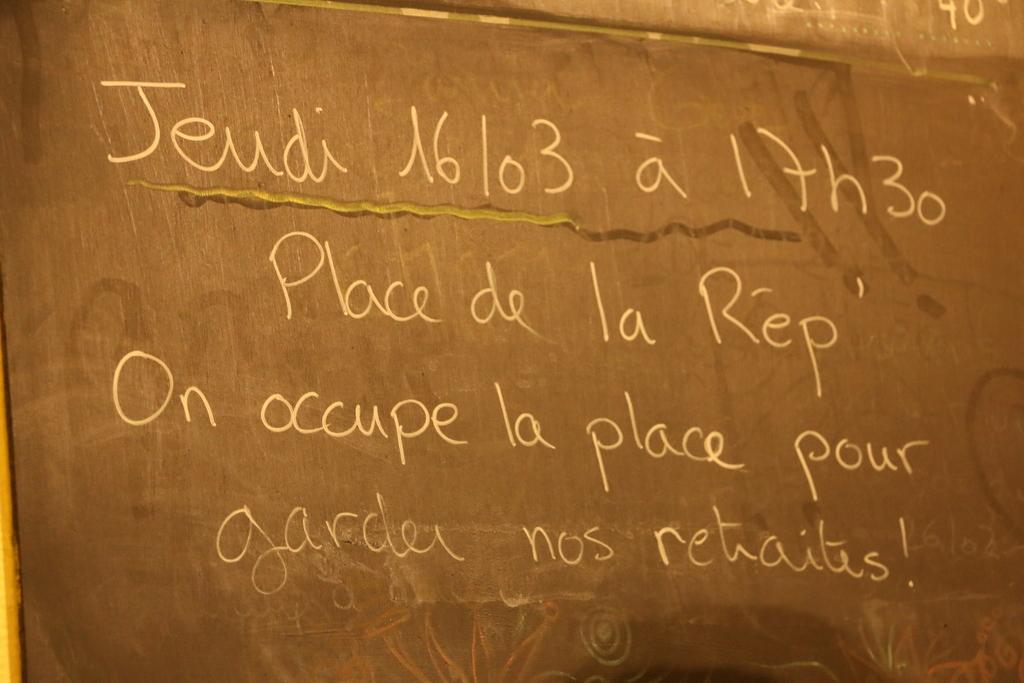 40
Jeudi 16/03 à 17h30
Place de la Rép'
On occupe la place pour
garder nos retraites!